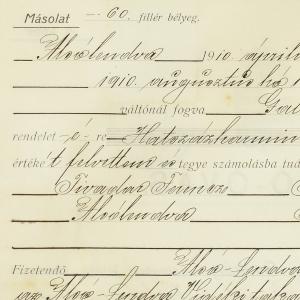 Másolat — 60. fillér bélyeg.
Alsólendva 1910. április
1910. augusztus hó 1
váltónál fogva
rendelet -é- re Hatszázharmin
érték e t felvettem és tegye számolásba tud
Tivadar Ferencz
Alsólendva
Fizetendő Alsó-Lendva
az Alsó-Lendva Vidéki tak